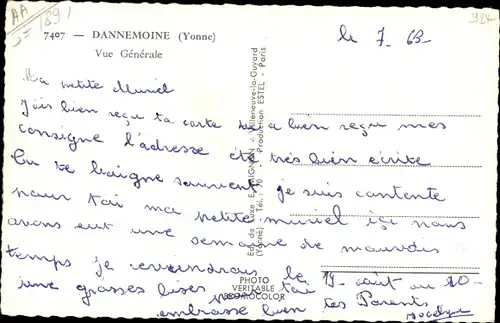 AA
7407 — DANNEMOINE (Yonne)
Vue Générale
le 7 - 63-
Ma petite Muriel
J'ais bien reçu ta carte tu a bien reçu mes
consigne l'adresse été très bien écrite
Tu te baigne souvent je suis contente
pour toi ma petite muriel içi nous
avons eut une semaine de mauvais
temps je reviendrais le 19 août au 20-
une grosses bises pour toi
embrasse bien tes Parents
Jocelyne
Villeneuve-la-Guyard
(Yonne) Tél.: 70
Production ESTEL - Paris
PHOTO
VERITABLE
BROMOCOLOR